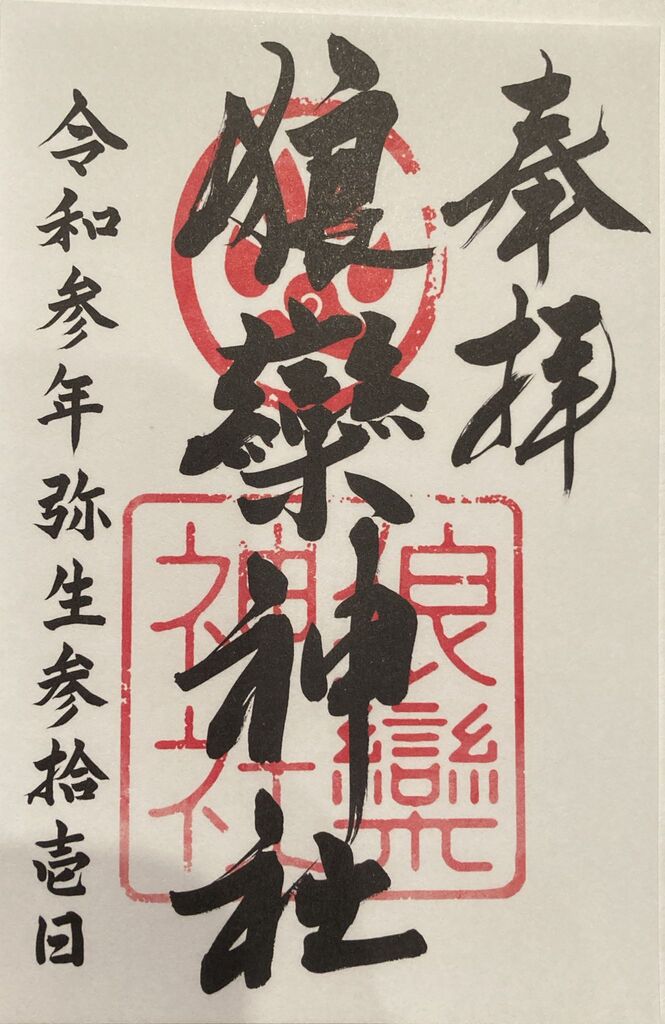 奉拝
狼欒神社
令和参年弥生参拾壱日
狼欒
神社